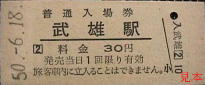 普通入場券
武雄駅
2 料金 30円
発売当日1回限り有効
旅客車内に立入ることはできません。
50.-6.18.
○入武雄② 10
見本